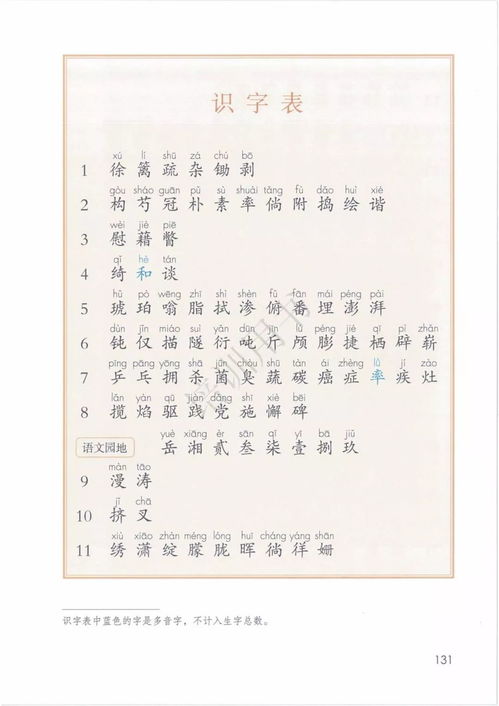 识字表
xú lí shū zá chú bō
1 徐篱疏杂锄剥
gòu sháo guān pǔ sù shuài tǎng fù dǎo huì xié
2 构芍冠朴素率倘附捣绘谐
wèi jiè piē
3 慰藉瞥
qǐ hè tán
4 绮和谈
hǔ pò wēng zhī shì shèn fǔ fān mái péng pài
5 琥珀嗡脂拭渗俯番埋澎湃
dùn jǐn miáo suì yǎn dūn jīn lú péng jié qī pì zhǎn
6 钝仅描隧衍吨斤颅膨捷栖辟崭
pīng pāng yōng shā jūn chòu shū tàn ái zhèng lǜ jí zào
7 乒乓拥杀菌臭蔬碳癌症率疾灶
lǎn yàn qū jiàn dǎng shī xiè bēi
8 揽焰驱践党施懈碑
yuè xiāng èr sān qī yī bā jiǔ
语文园地 岳湘贰叁柒壹捌玖
màn tāo
9 漫涛
jǐ chā
10 挤叉
xiù xiāo zhàn méng lóng huī cháng yáng shān
11 绣潇绽朦胧晖徜徉姗
识字表中蓝色的字是多音字，不计入生字总数。
131
培训用书